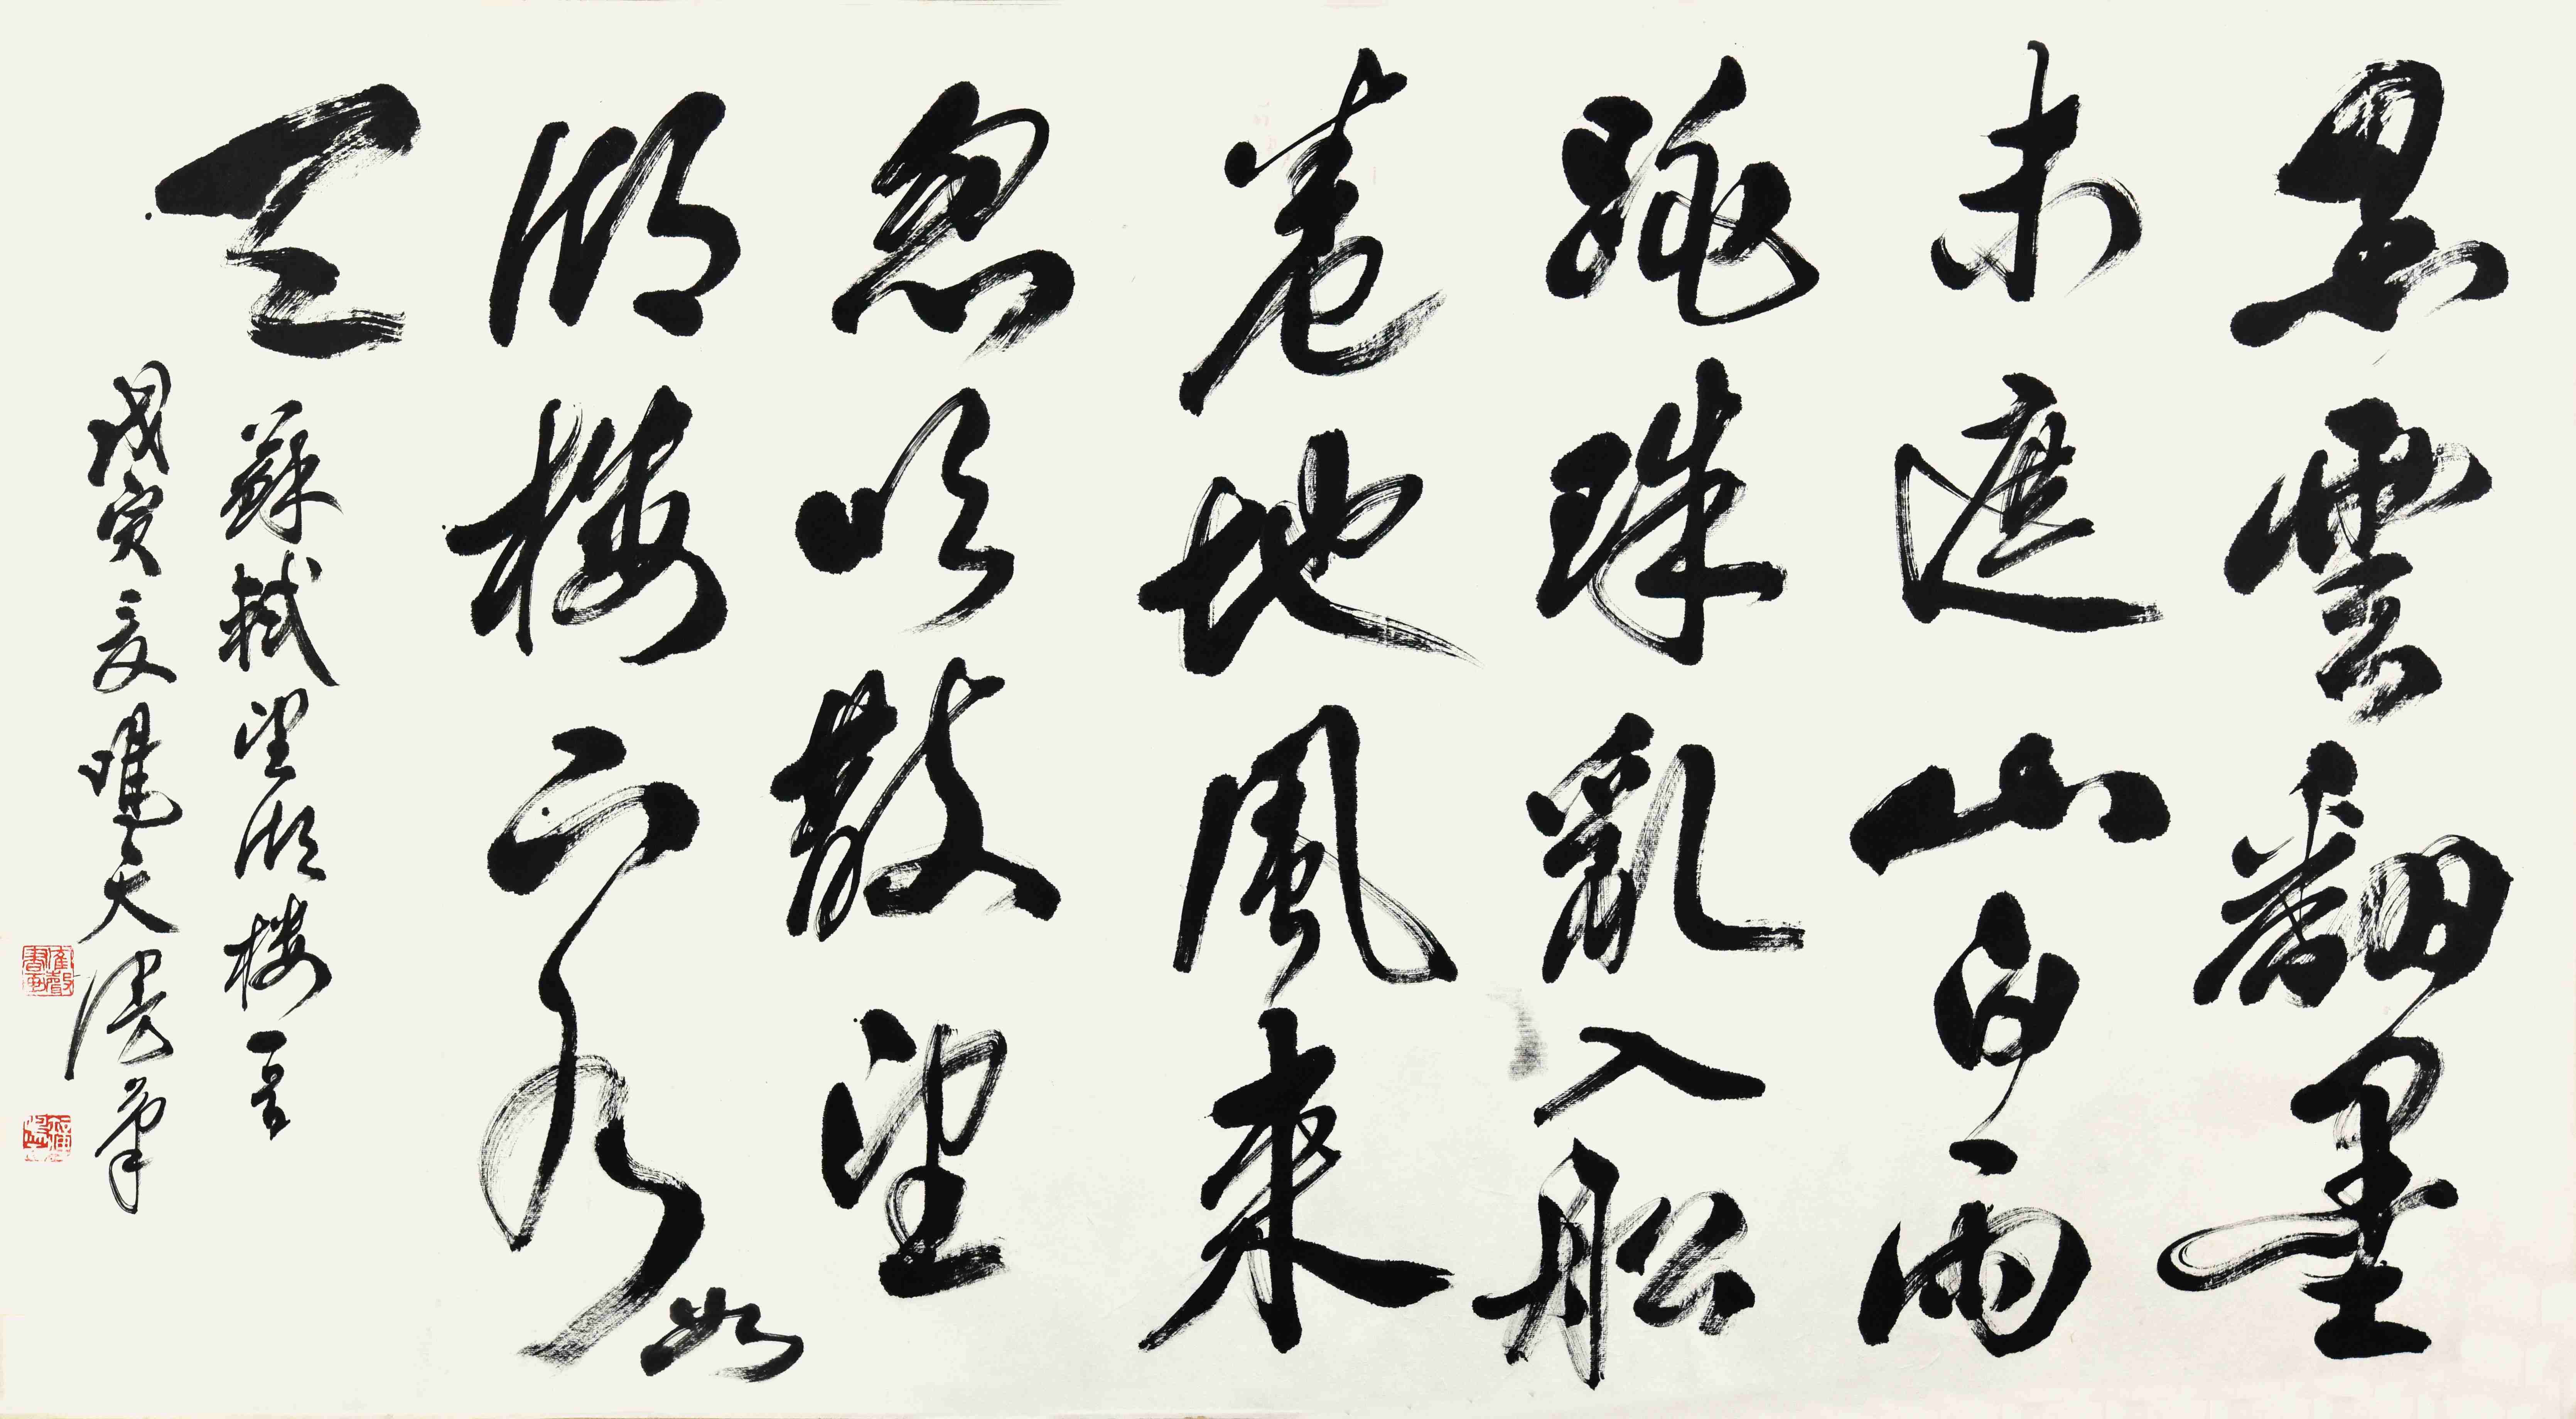 黑雲翻墨
未遮山白雨
跳珠亂入船
卷地風來
忽吹散望
湖樓下水如
天
蘇軾望湖樓一首
戊寅夏曉天筆